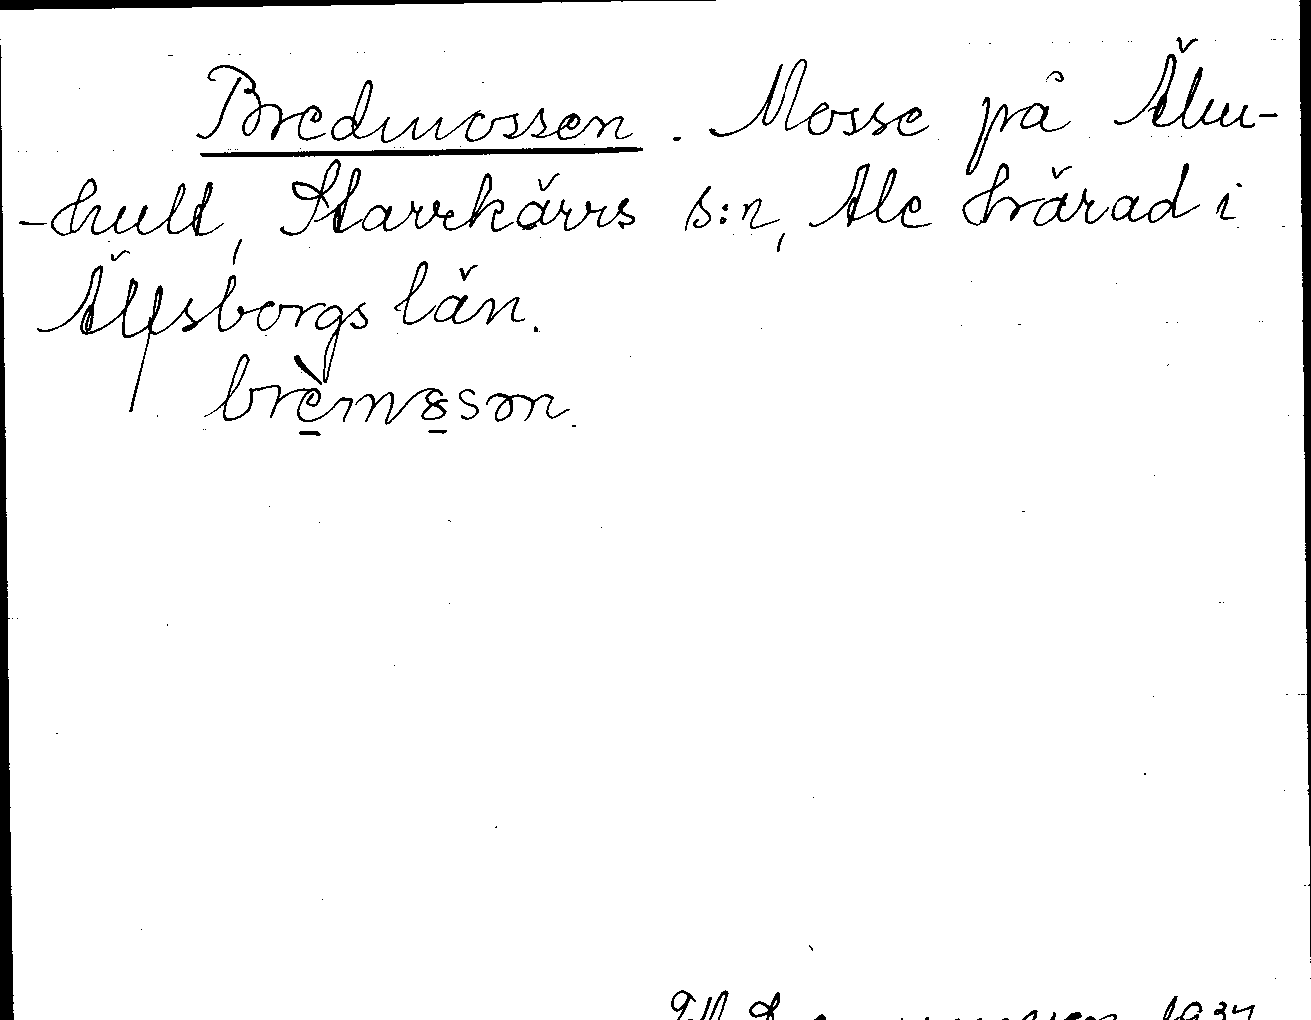 Bredmossen. Mosse på Älm-
-hult, Starrkärrs s:n, Ale härad i
Älfsborgs län.
brèm8sən.
1937